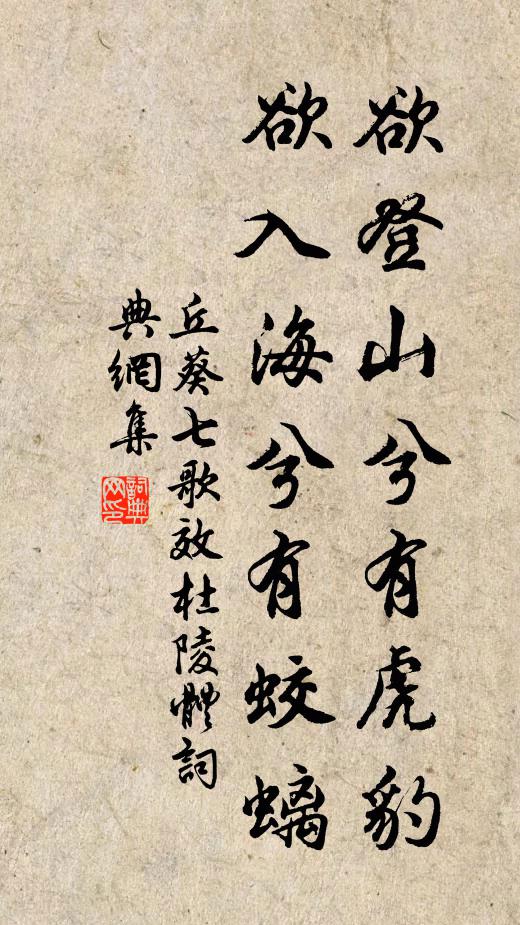 欲登山兮有虎豹
欲入海兮有蛟螭
丘葵七歌效杜陵體詞
典網集
詞典
网印